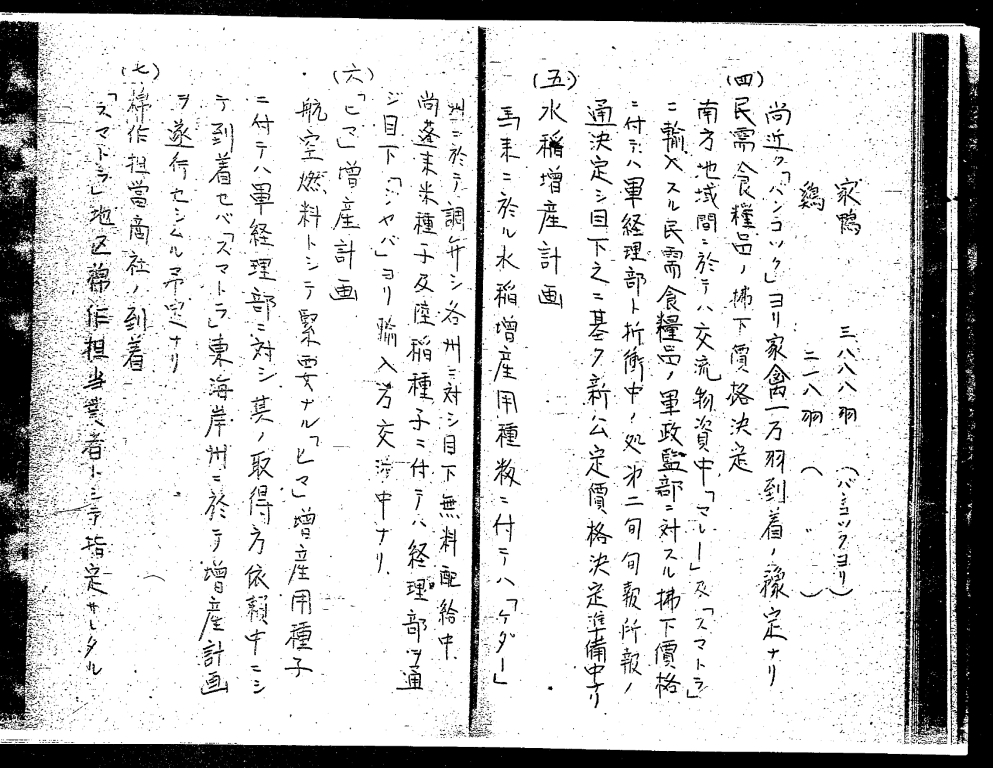 家鴨 三八八八羽 (バンコックヨリ)
鷄 二二八羽 ( 〃 )
尚近ク「バンコック」ヨリ家禽一万羽到着ノ豫定ナリ
(四)民需食糧品ノ拂下價格決定
南方地域間ニ於テハ交流物資中「マレー」及「スマトラ」
ニ輸入スル民需食糧品ノ軍政監部ニ対スル拂下價格
ニ付テハ軍経理部ト折衝中ノ処第二旬旬報所報ノ
通決定シ目下之ニ基ク新公定價格決定準備中ナリ
(五)水稲増産計画
馬来ニ於ル水稲増産用種籾ニ付テハ「ケダー」
州ニ於テ調弁シ各州ニ対シ目下無料配給中
尚蓬莱米種子及陸稲種子ニ付テハ経理部ヲ通
ジ目下「ジャバ」ヨリ輸入方交渉中ナリ.
(六)「ヒマ」増産計画
航空燃料トシテ緊要ナル「ヒマ」増産用種子
ニ付テハ軍経理部ニ対シ其ノ取得方依頼中ニシ
テ到着セバ「スマトラ」東海岸州ニ於テ増産計画
ヲ遂行セシムル予定ナリ
(七)棉作担當商社ノ到着
「スマトラ」地区棉作担当業者トシテ指定サレタル